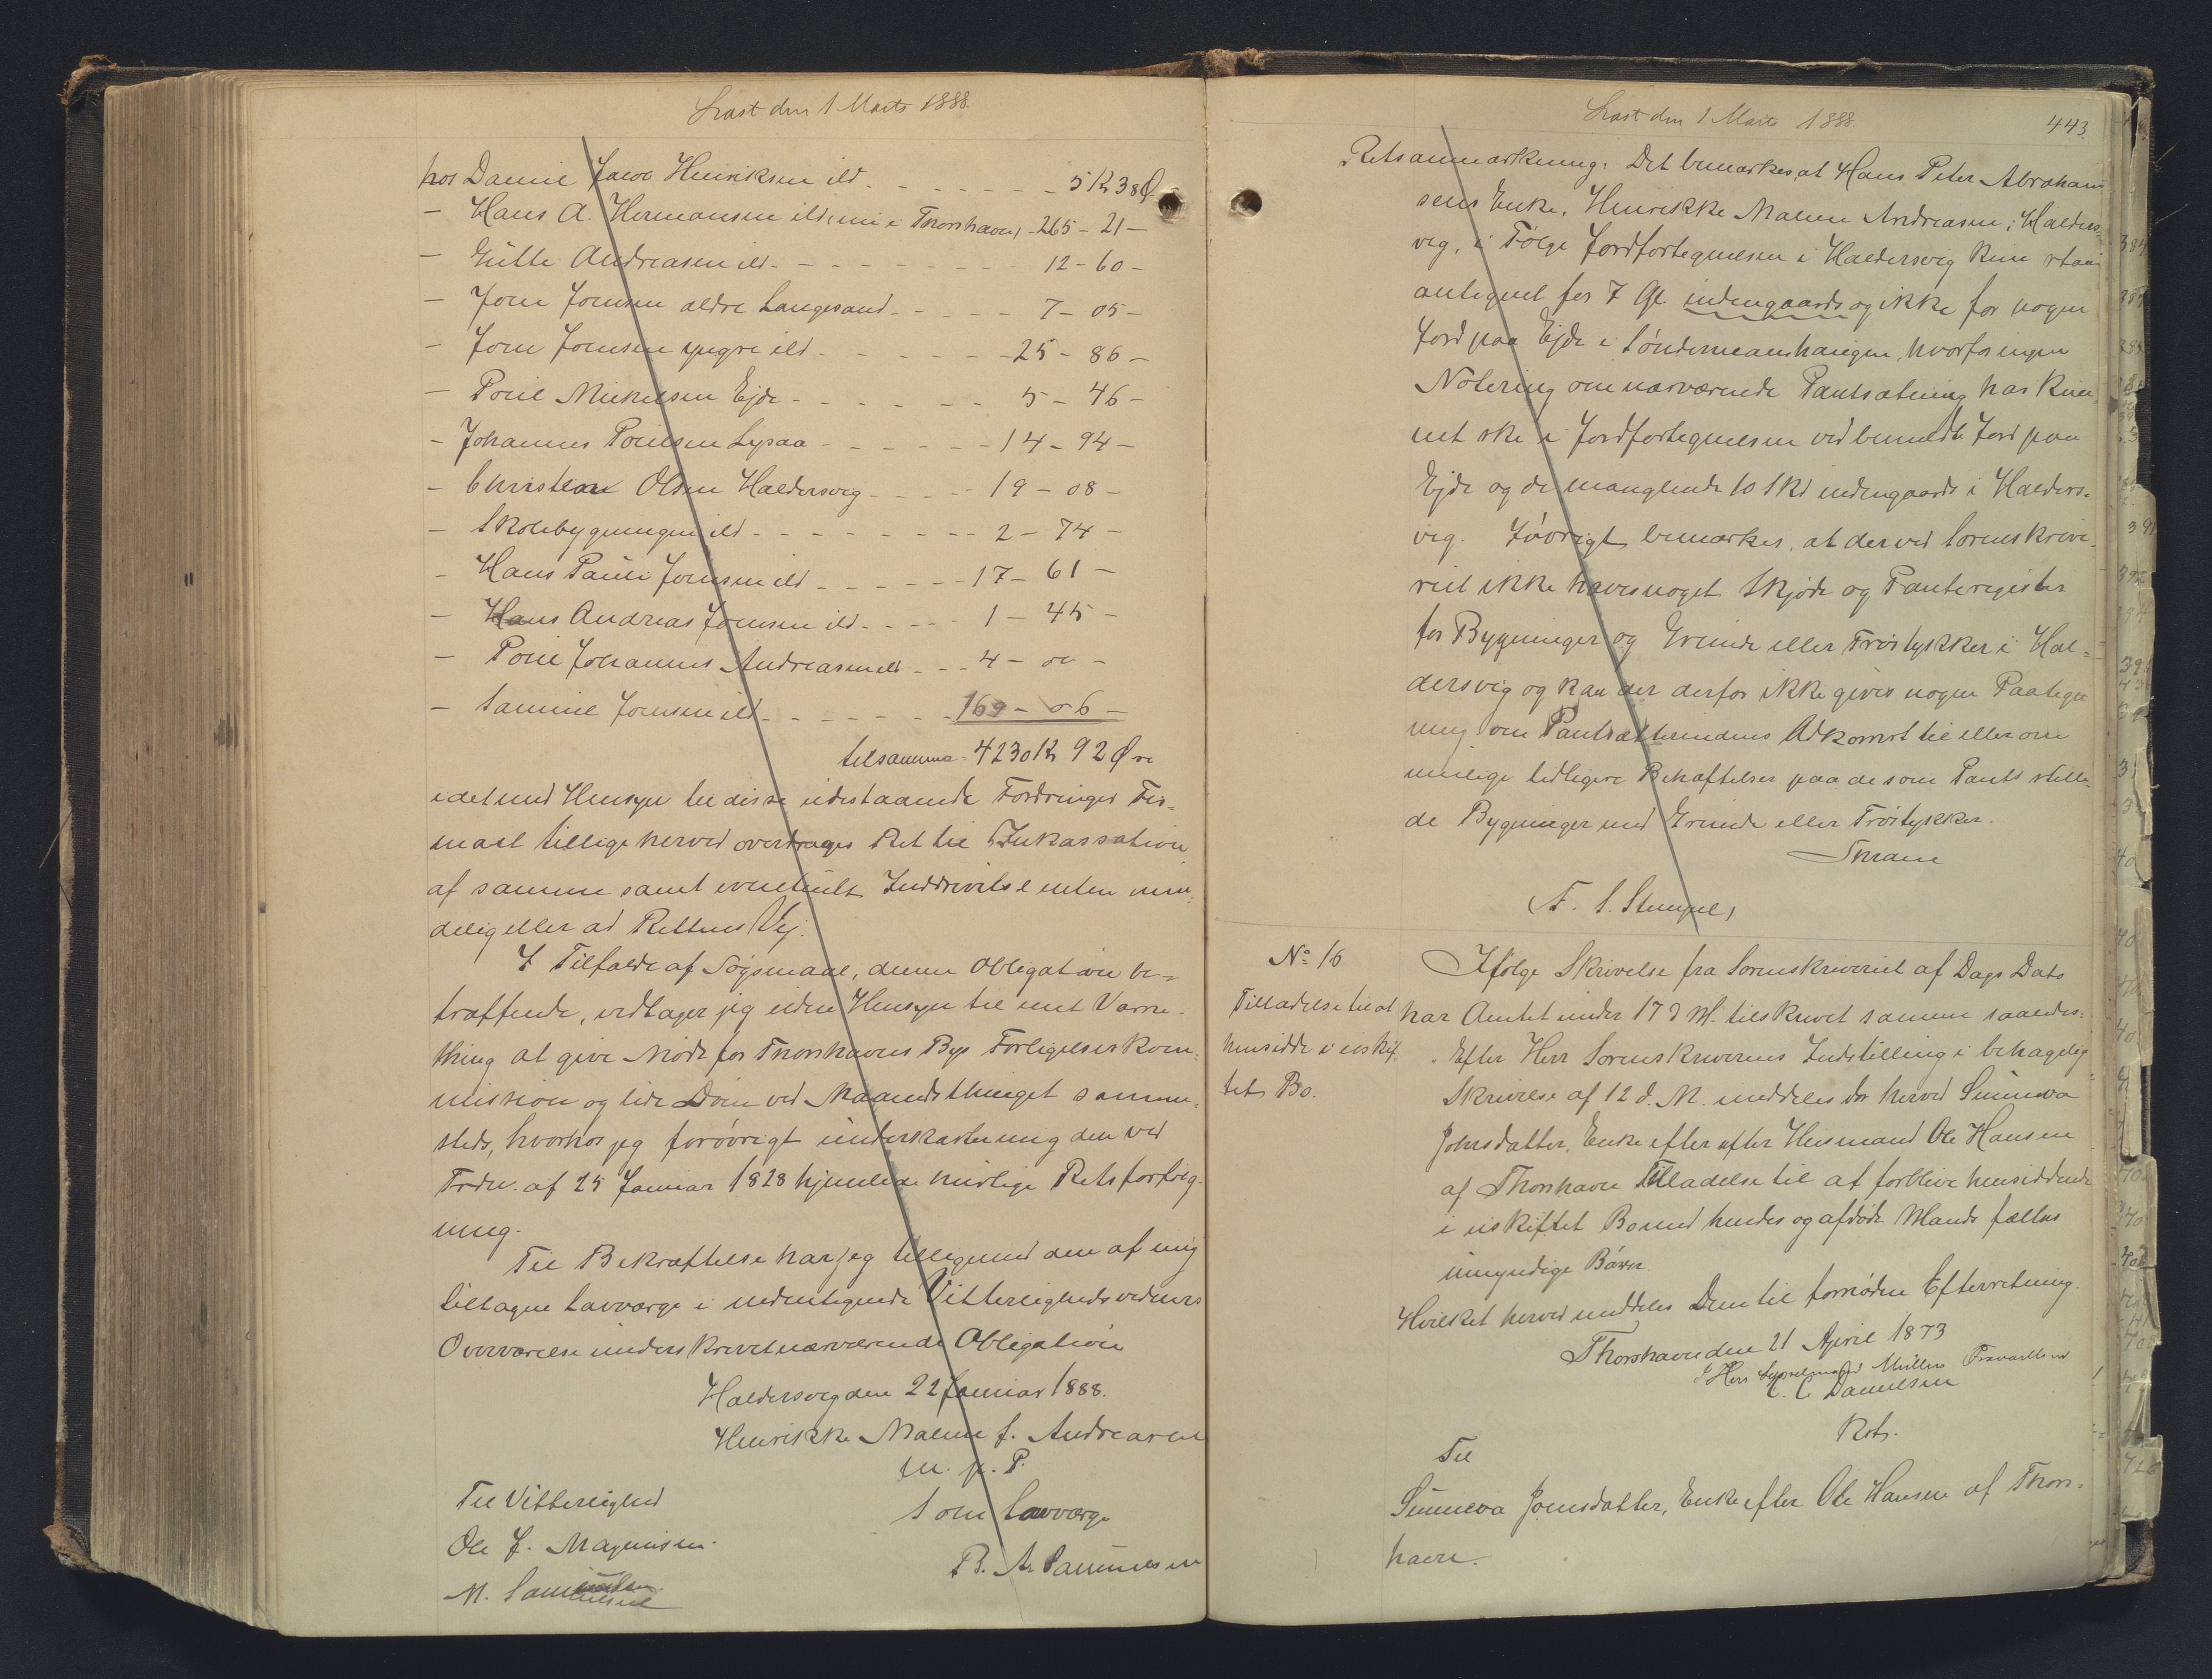 Læst den 1 Marts 1888.
hos Daniel Jacob Henriksen ibd. - - - - - - - 5 Kr 38 Ø
- Hans A. Hermansen ibd, nu i Thorshavn, - 265 - 21 -
- Gutte Andreasen ibd. - - - - - - - - 12 - 60 -
- Joen Joensen ældre Langesand - - - - - 7 - 05 -
- Joen Joensen yngre ibd - - - - - - - 25 - 86 -
- Poul Mickelsen Ejde - - - - - - - 5 - 46 -
- Johannes Poulsen Lysaa - - - - - - 14 - 94 -
- Christian Olsen Haldersvig - - - - - 19 - 08 -
- Skolebygningen ibd - - - - - - - - 2 - 74 -
- Hans Pauli Joensen ibd - - - - - - 17 - 61 -
- Hans Andreas Joensen ibd. - - - - 1 - 45 -
- Poul Johannes Andreasen ibd - - - 4 - 00 -
- Samuel Joensen ibd - - - - - - - 169 - 06 -
tilsammen - 4230 Kr 92 Øre
idet med Hensyn til disse udestaaende Fordringer Fir=
maet tillige herved overdrages Ret til Inkassation
af samme samt eventuelt Inddrivelse enten min=
delig eller ad Rettens Vej.
I Tilfælde af Søgsmaal, denne Obligation be=
træffende, vedtager jeg uden Hensyn til mit Værne-
thing at give Møde for Thorshavns Bys Forligelseskom=
mission og lide Dom ved Maanedsthinget samme=
steds, hvorhos jeg forøvrigt underkaster mig den ved
Frdn. af 25 Januar 1828 hjemlede hurtige Retsforfølg-
ning.
Til Bekræftelse har jeg tilligemed den af mig
tiltagne Lavværge i nedentegnede Vitterlighedsvidners
Overværelse underskrevet nærværende Obligation
Haldersvig den 22 Januar 1888.
Henrikke Malene f. Andreasen
m. p. P.
Til Vitterlighed
Som Lavværge
Ole J. Magnusen.
B. A. Samuelsen
M. Samuelsen
Læst den 1 Marts 1888.
443.
Retsanmærkning. Det bemærkes, at Hans Peter Abraham
sens Enke, Henrikke Malene Andreasen, i Halders=
vig, i Følge Jordfortegnelsen i Haldersvig kun staar
antegnet for 7 Gl. indengaards og ikke for nogen
Jord paa Ejde i Søndernæanhaugen, hvorfor ingen
Notering om nærværende Pantsætning har kun=
net ske i Jordfortegnelsen ved bemeldte Jord paa
Ejde og de manglende 10 Skd indengaards i Halders=
vig. Iøvrigt bemærkes, at der ved Sorenskrive=
riet ikke haves noget Skjøde og Panteregister
for Bygninger og Grunde eller Trøstykker i Hal=
dersvig og kan der derfor ikke gives nogen Paateg=
ning om Pantsætterindens Adkomst til eller om
mulige tidligere Behæftelser paa de som Pant stille=
de Bygninger med Grunde eller Trøstykker.
Thrane
(F. S. Stempel)
No 16
Tilladelse til at
hensidde i uskif
tet Bo.
Ifølge Skrivelse fra Sorenskriveriet af Dags Dato
har Amtet under 17 d M. tilskrevet samme saaledes:
Efter Herr Sorenskriverens Indstilling i behagelig
Skrivelse af 12 d. M. meddeles der herved Sunneva
Johnsdatter, Enke efter efter Husmand Ole Hansen
af Thorshavn Tilladelse til at forblive hensiddende
i uskiftet Bo med hendes og afdøde Mands fælles
umyndige Børn.
Hvilket herved meddeles Dem til fornøden Efterretning.
Thorshavn den 21 April 1873
f. Herr Sysselmand Müller
C. C. Danielsen
Kst.
Til
Sunneva Joensdatter, Enke efter Ole Hansen af Thors=
havn.